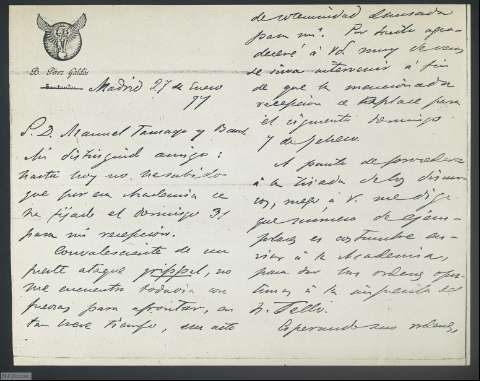 B. Pérez Galdós
Santander
Madrid 27 de Enero
97
S. D. Manuel Tamayo y Baus
Mi distinguido amigo:
hasta hoy no he sabido
que por esa Academia se
ha fijado el domingo 31
para mi recepción.
Convaleciente de un
fuerte ataque grippal, no
me encuentro todavía con
fuerzas para afrontar, en
tan breve tiempo, un acto
de solemnidad
para mí. Por tanto agra-
deceré á Vd. muy de veras
se sirva intervenir á fin
de que la mencionada
recepción se aplace para
el siguiente domingo
7 de febrero.
A punto de proceder
á la tirada de los discur-
sos, ruego á V. me diga
que número de ejem-
plares es costumbre en-
viar á la Academia,
para dar las órdenes opor-
tunas á la imprenta de
Tello.
Esperando sus órdenes,